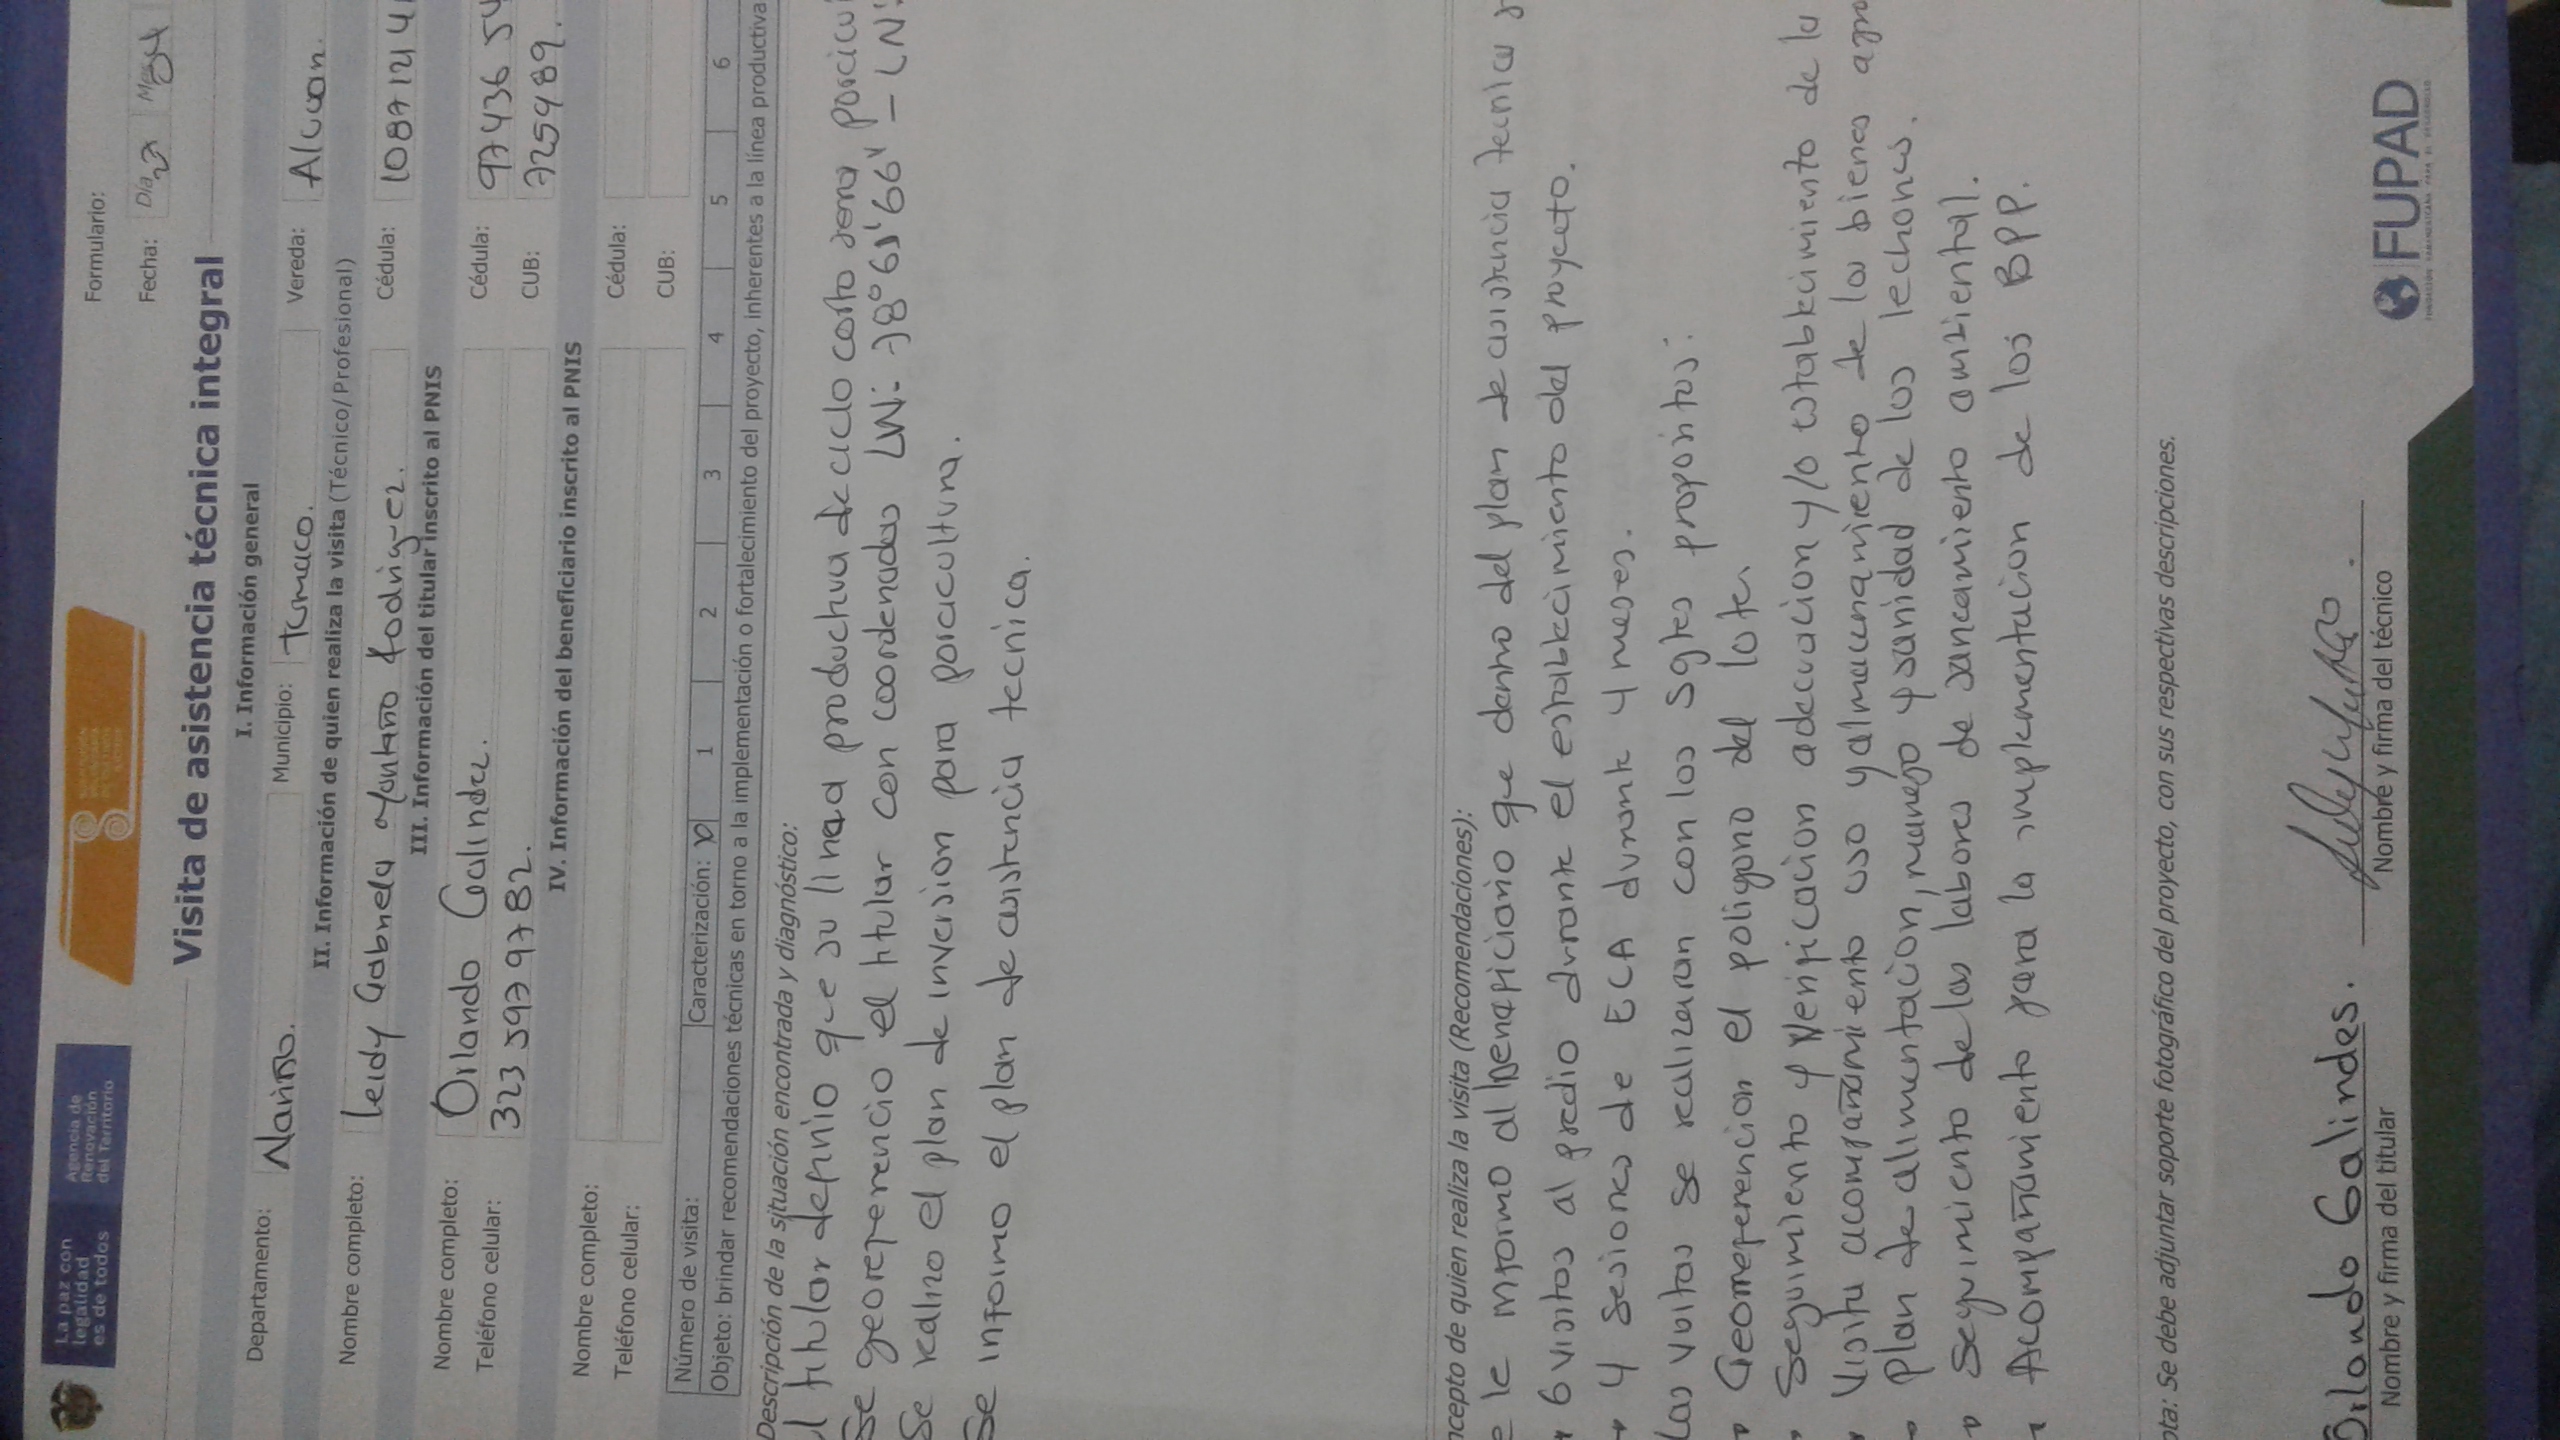 La paz con
legalidad
es de todos
Agencia de
Renovación
del Territorio
Formulario:
Fecha: Día 27 Mes
Visita de asistencia técnica integral
I. Información general
Departamento: Nariño. Municipio: Tumaco. Vereda: Alcuan.
II. Información de quien realiza la visita (Técnico/Profesional)
Nombre completo: Leidy Gabriela Montaño Rodriguez. Cédula: 10871214
III. Información del titular inscrito al PNIS
Nombre completo: Orlando Galindez. Cédula: 97436 54
Teléfono celular: 323 597 97 82. CUB: 725489.
IV. Información del beneficiario inscrito al PNIS
Nombre completo: Cédula:
Teléfono celular: CUB:
Número de visita: Caracterización: X 1 2 3 4 5 6
Objeto: brindar recomendaciones técnicas en torno a la implementación o fortalecimiento del proyecto, inherentes a la línea productiva
Descripción de la situación encontrada y diagnóstico:
l titular definio que su linea productiva de ciclo corto sera porcicul
Se georeferencio el titular con coordenadas LW: 78° 61' 66" - LN:
Se realizo el plan de inversion para porcicultura.
Se informo el plan de asistencia tecnica.
ncepto de quien realiza la visita (Recomendaciones):
e le informo al beneficiario que dentro del plan de asistencia tecnica
6 visitas al predio durante el establecimiento del proyecto.
4 sesiones de ECA durante 4 meses.
Las visitas se realizaran con los sgtes propositos:
Georreferencion el poligono del lote.
Seguimiento y verificacion adecuacion y/o establecimiento de la
Visita acompañamiento uso y almacenamiento de los bienes agro
Plan de alimentacion, manejo y sanidad de los lechones.
Seguimiento de las labores de saneamiento ambiental.
Acompañamiento para la implementacion de los BPP.
ota: Se debe adjuntar soporte fotográfico del proyecto, con sus respectivas descripciones.
Orlando Galindes.
Nombre y firma del titular
Nombre y firma del técnico
FUPAD